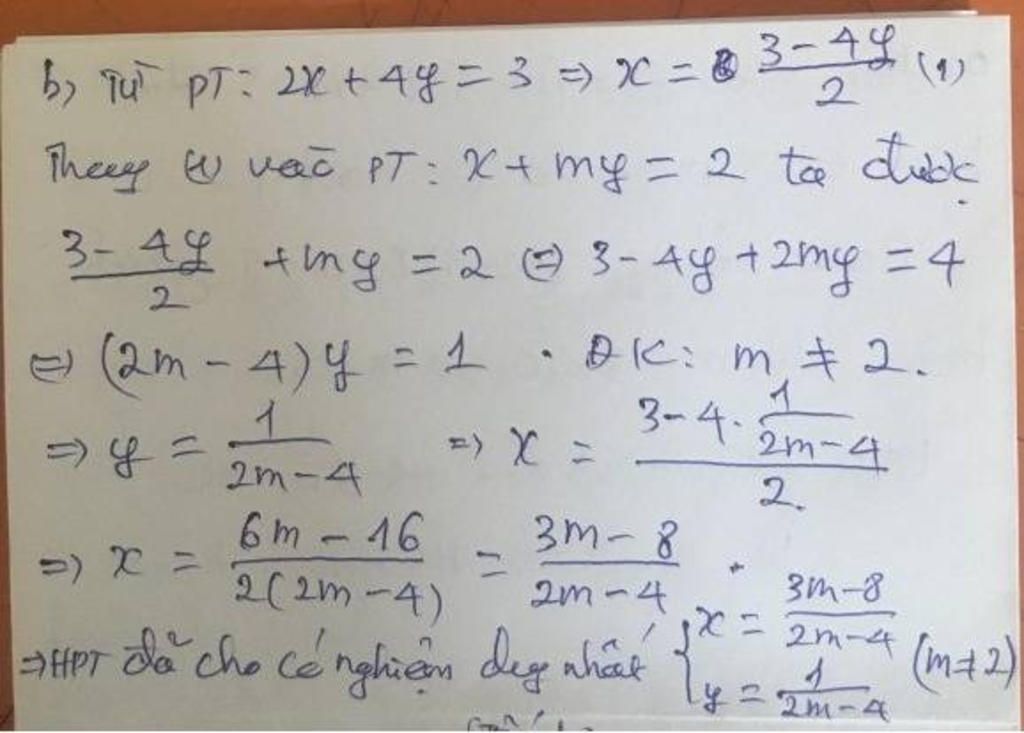 b) Từ PT: 2x + 4y = 3 => x = \frac{3 - 4y}{2} (1)
Thay (1) vào PT: x + my = 2 ta được
\frac{3 - 4y}{2} + my = 2 <=> 3 - 4y + 2my = 4
<=> (2m - 4)y = 1 . ĐK: m ≠ 2.
=> y = \frac{1}{2m - 4} => x = \frac{3 - 4. \frac{1}{2m - 4}}{2.}
=> x = \frac{6m - 16}{2(2m - 4)} = \frac{3m - 8}{2m - 4} .
=> HPT đã cho có nghiệm duy nhất { x = \frac{3m - 8}{2m - 4} ; y = \frac{1}{2m - 4} (m ≠ 2)